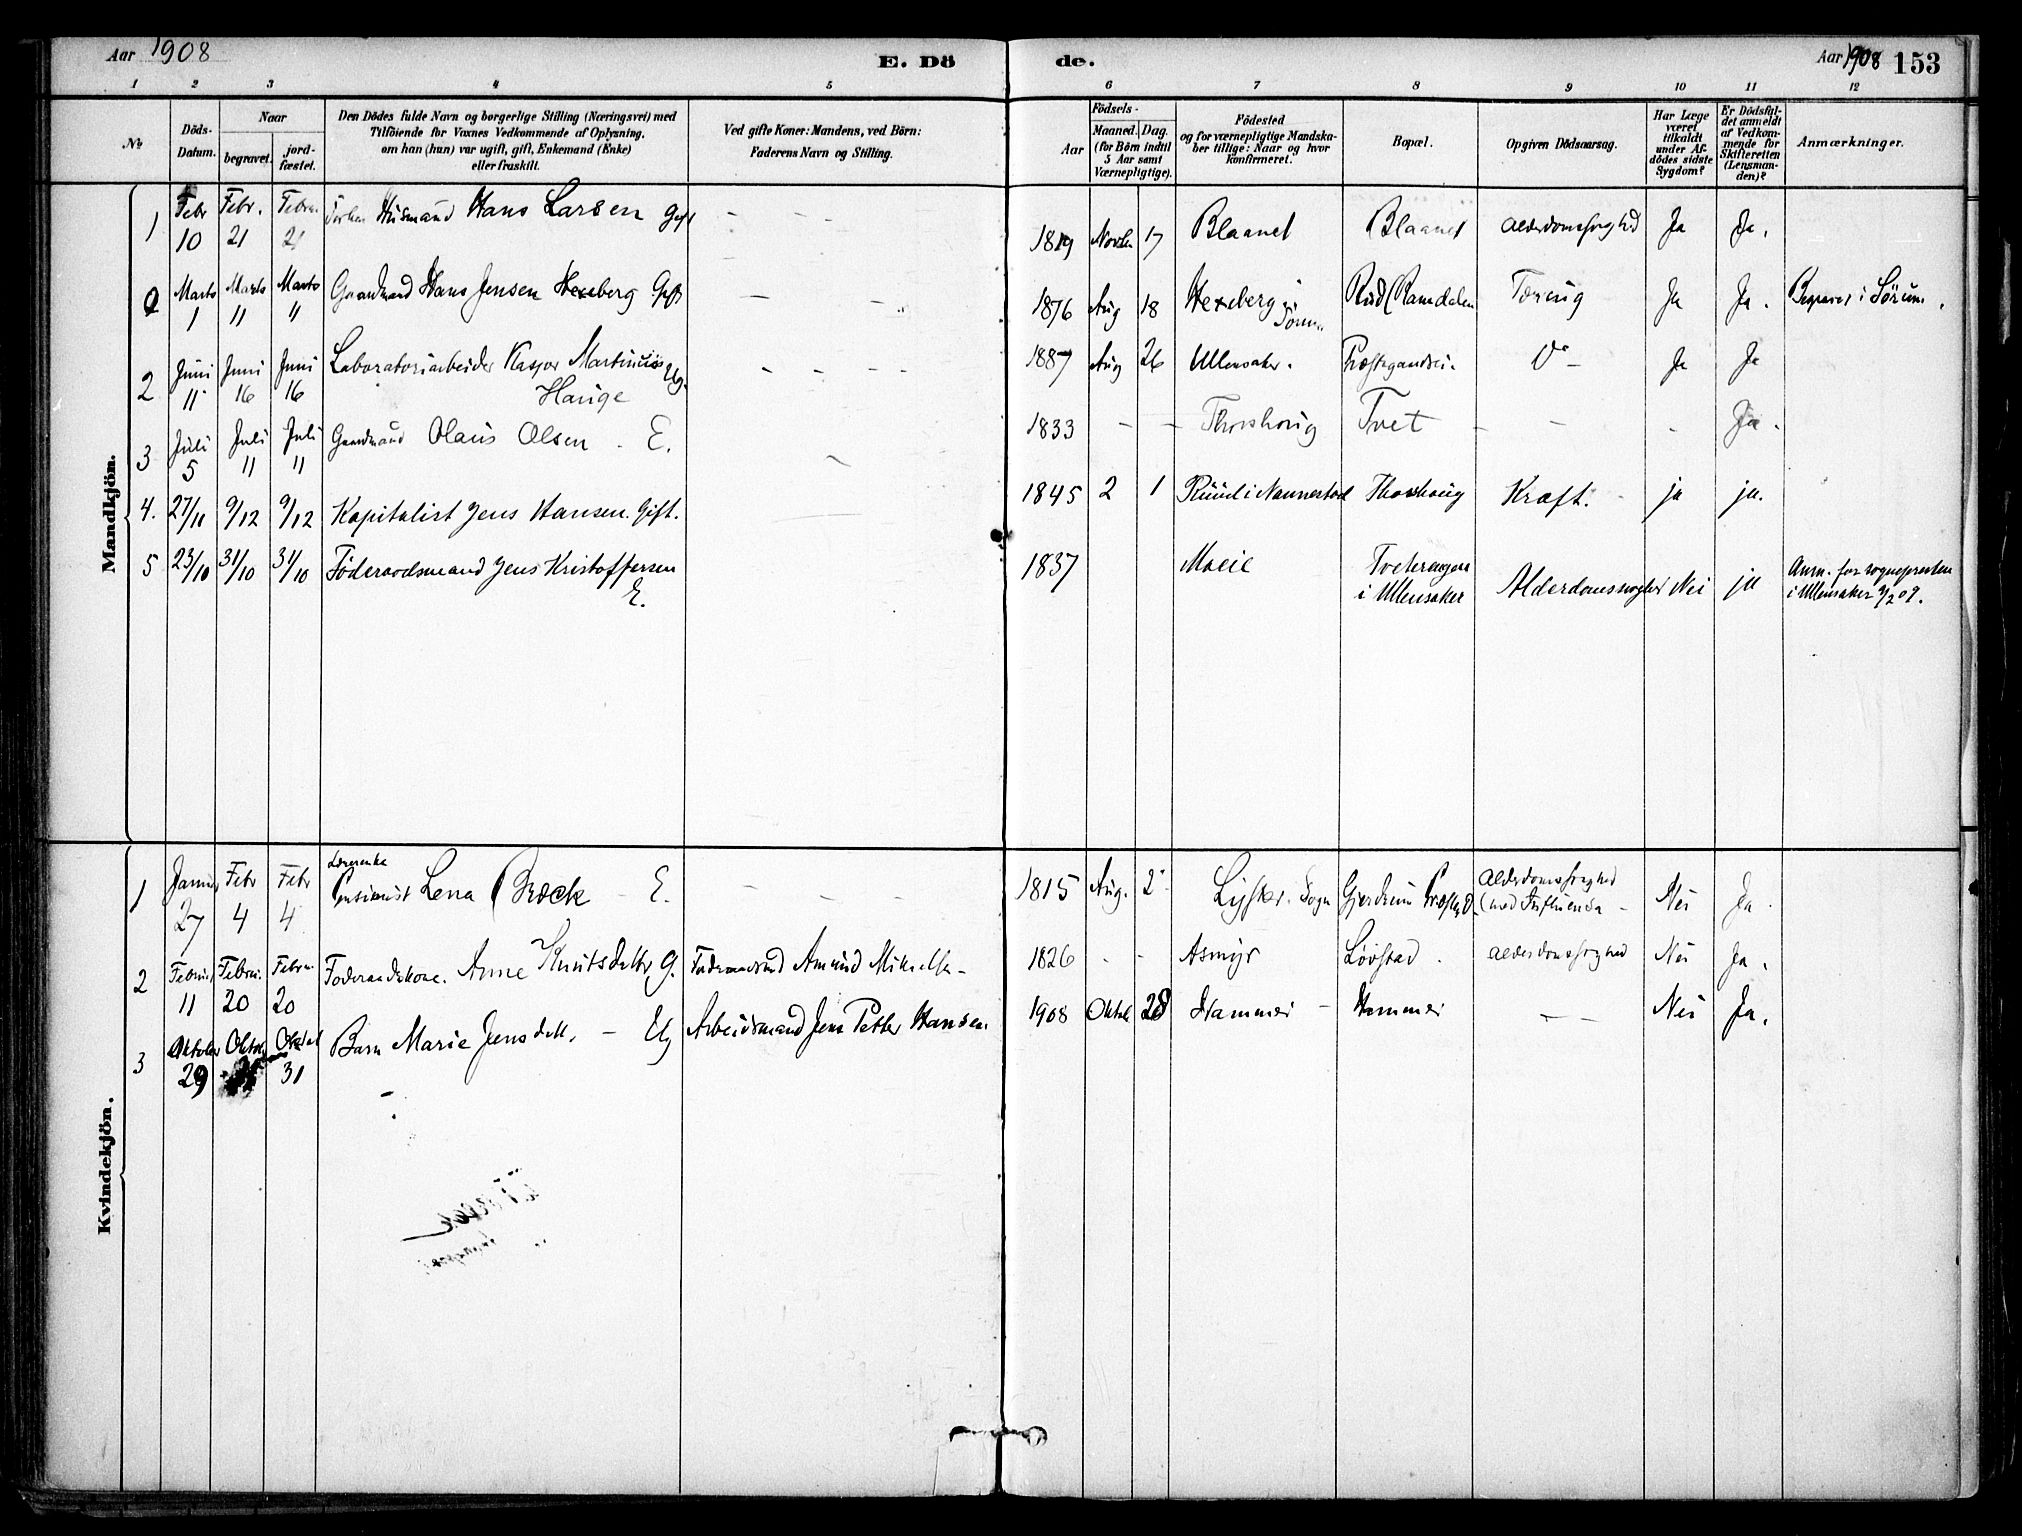 Aar 1908
E. Dö
de.
Aar 1908
153
1 2 3 4 5 6 7 8 9 10 11 12
№
Döds-
Datum.
Naar
begravet.
jord-
fæstet.
Den Dödes fulde Navn og borgerlige Stilling (Næringsvei) med
Tilföiende for Voxnes Vedkommende af Oplysning,
om han (hun) var ugift, gift, Enkemand (Enke)
eller fraskilt.
Ved gifte Koner: Mandens, ved Börn:
Faderens Navn og Stilling.
Födsels-
Aar
Maaned. Dag.
(for Börn indtil
5 Aar samt
Værnepligtige).
Födested
og for værnepligtige Mandska-
ber tillige: Naar og hvor
konfirmeret.
Bopæl.
Opgiven Dödsaarsag.
Har Læge
været
tilkaldt
under Af-
dödes sidste
Sygdom?
Er Dödsfal-
det anmeldt
af Vedkom-
mende for
Skifteretten
(Lensman-
den)?
Anmærkninger.
Mandkjön.
1 Febr 10 Febr. 21 Febru. 21 Husmand Hans Larsen Gift - - - 1819 Novbr 17 Blaanet Blaanet Alderdomssvaghed Ja Ja.
Marts 1 Marts 11 Marts 11 Gaardmand Hans Jensen Hexeberg Gift - - 1876 Aug 18 Hexeberg i Rud (Ramdalen Ja Ja. i Sörum.
2 Juni 11 Juni 16 Juni 16 Laboratoriarbeider Kaspar Martinius Ug.
Hauge - - - - 1887 Aug 26 Ullensaker. Do - Ja Ja
3 Juli 5 Juli 11 Juli 11 Gaardmand Olaus Olsen - E. 1833 - - Thorshoug Tvet - - - Ja.
4. 27/11 9/12 9/12 Kapitalist Jens Hansen. Gift. 1845 2 1 Ruud i Nannestad Thorshoug Kræft. ja ja.
5 23/10 31/10 31/10 Föderaadsmand Jens Kristoffersen
E. 1837 Moeie
i Ullensaker Alderdomssvaghed Nei ja Anm. for sognepresten
i Ullensaker 09.
Kvindekjön.
Lærerenke
1 Januar 27 Febr 4 Febr 4 Pensionist Lena Brock - E. - - - 1815 Aug. 2 Lyster. Sogn Gjerdrum Præstegd. Alderdomssvaghed
(med Influensa - Nei Ja.
2 Februar 11 Februa. 20 Februa. 20 Föderaadskone. Anne Knutsdatter G. Föderaadsmand Amund Mikkelsen - 1826 - - Asmyr Lövstad. Alderdomssvaghed Nei Ja.
3 Oktober 29 Oktob Oktob 31 Barn Marie Jensdatt. - Ug Arbeidsmand Jens Petter Hansen. 1908 Oktob 28 Hammer - Hammer - - Nei Ja.